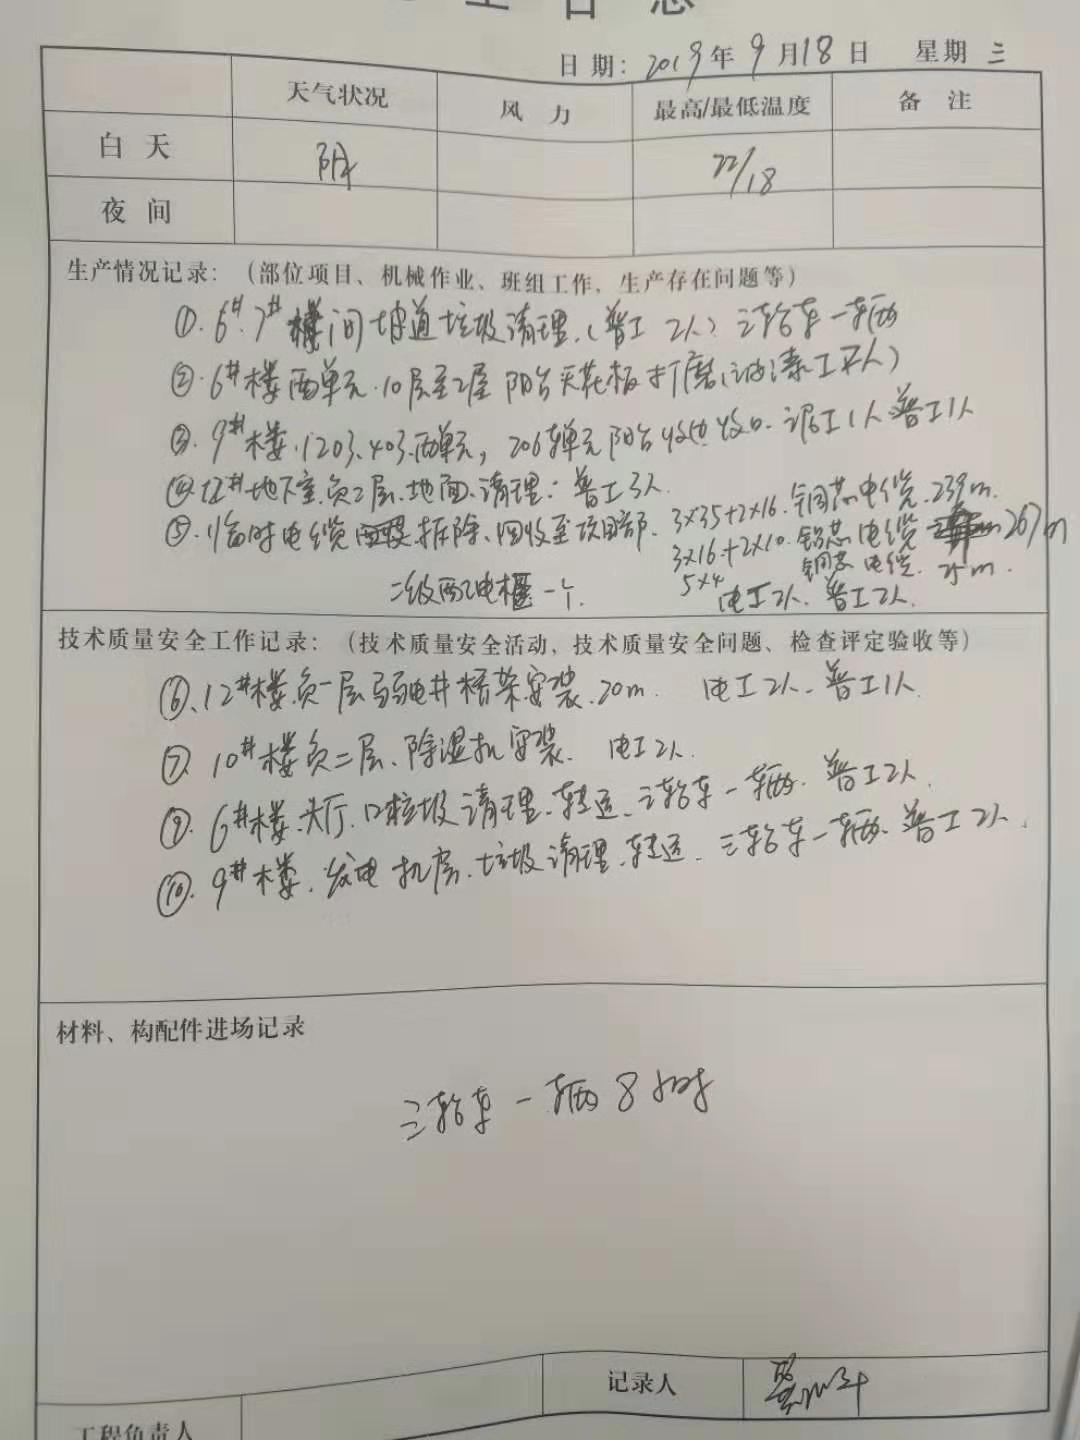 日期：2019年9月18日 星期三
天气状况 风 力 最高/最低温度 备 注
白 天 阴 22/18
夜 间
生产情况记录：（部位项目、机械作业、班组工作，生产存在问题等）
①.6#.7#楼间坡道垃圾清理.（普工2人）三轮车一辆
②.6#楼两单元.10层至2层 阳台天花板打磨（油漆工2人）
③.9#楼.1203.403.两单元，206单元阳台收边收口.泥工1人.普工1人
④12#地下室.负二层.地面.清理：普工3人.
⑤.临时电缆拆除、回收至项目部. 3×35+2×16.铜芯电缆.239m.
3×16.+2×10.铝芯电缆 267m
5×4 铜芯电缆. 25m.
二级配电柜一个. 电工2人.普工2人.
技术质量安全工作记录：（技术质量安全活动，技术质量安全问题、检查评定验收等）
⑥、12#楼负一层弱电井桥架安装.20m. 电工2人.普工1人.
⑦. 10#楼负二层、除湿机安装. 电工2人.
⑨. 6#楼.大厅.口垃圾清理.转运.三轮车一辆.普工2人.
⑩. 9#楼.发电机房.垃圾清理.转运.三轮车一辆.普工2人.
材料、构配件进场记录
三轮车一辆8小时
记录人
工程负责人